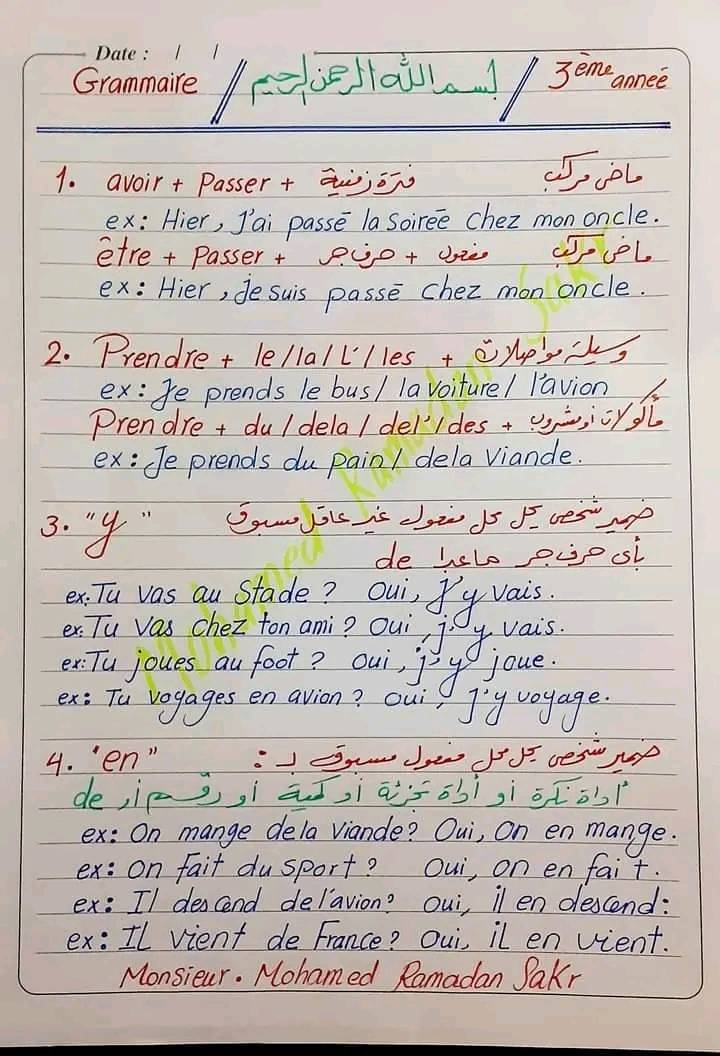 Date : / /
Grammaire // بسم الله الرحمن الرحيم // 3ème anneé
1. avoir + Passer + فترة زمنية ماضى مركب
ex: Hier, J'ai passé la Soirée chez mon oncle.
être + Passer + حرف جر + مفعول ماضى مركب
ex: Hier, Je suis passé chez mon oncle.
2. Prendre + le/la/L'/les + وسيلة مواصلات
ex: Je prends le bus/ la voiture/ l'avion
Prendre + du/dela/del'/des + مأكولات أو مشروب
ex: Je prends du pain/ dela viande.
3. "y" ضمير شخصى يحل محل مفعول غير عاقل مسبوق
بأى حرف جر ماعدا de
ex: Tu vas au Stade? Oui, J'y vais.
ex: Tu vas chez ton ami? Oui, j'y vais.
ex: Tu joues au foot? oui, j'y joue.
ex: Tu voyages en avion? oui, J'y voyage.
4. "en" ضمير شخصى يحل محل مفعول مسبوق بـ :
أداة نكرة أو أداة تجزئة أو كمية أو رقم أو de
ex: On mange dela viande? Oui, On en mange.
ex: On fait du sport? Oui, on en fait.
ex: Il descend del'avion? oui, il en descend:
ex: IL vient de France? Oui, iL en vient.
Monsieur. Mohamed Ramadan Sakr
Mohamed Ramadan Sakr